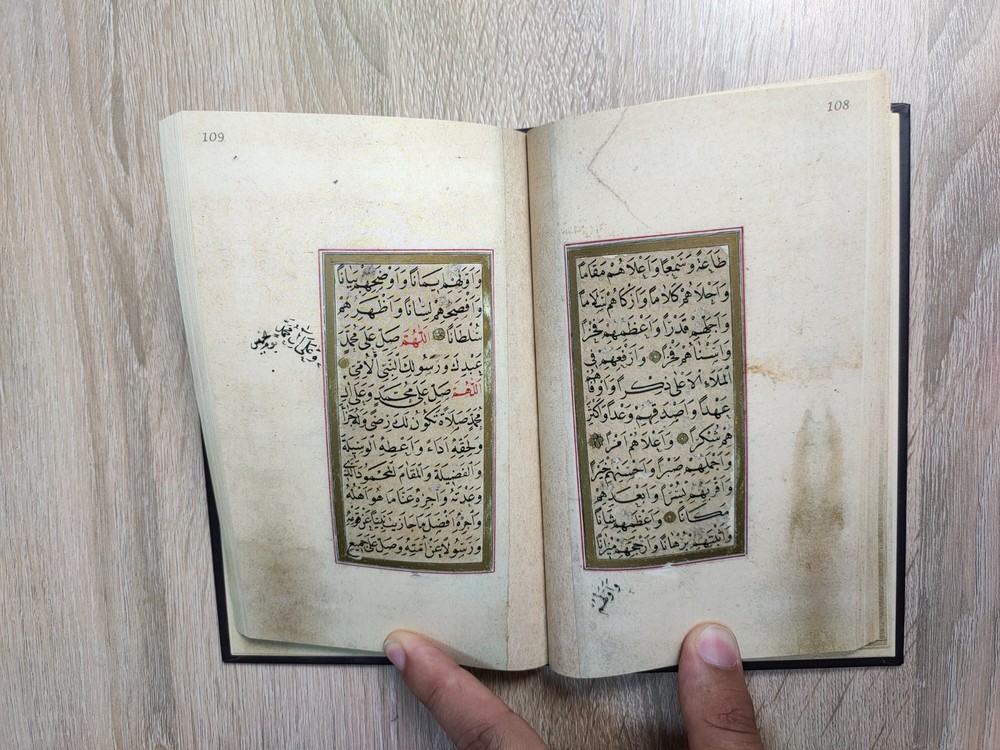 108
طَاعَةً وَسَمْعًا وَاَعْلَاهُمْ مَقَامًا
وَاَحْلَاهُمْ كَلَامًا وَاَزْكَاهُمْ سَلَامًا
وَاَجَلِّهِمْ قَدْرًا وَاَعْظَمِهِمْ فَخْرًا
وَاَسْنَاهُمْ فَخْرًا وَاَرْفَعِهِمْ فِي
الْمَلَاءِ الْاَعْلٰى ذِكْرًا وَاَوْفَاهُمْ
عَهْدًا وَاَصْدَقِهِمْ وَعْدًا وَاَكْثَرِ
هِمْ شُكْرًا وَاَعْلَاهُمْ اَمْرًا
وَاَجْمَلِهِمْ صَبْرًا وَاَحْسَنِهِمْ خَيْرًا
وَاَقْرَبِهِمْ يُسْرًا وَاَبْعَدِهِمْ
مَكَانًا وَاَعْظَمِهِمْ شَانًا
وَاَثْبَتِهِمْ بُرْهَانًا وَاَرْجَحِهِمْ مِيزَانًا
واولهم
109
وَاَوَّلِهِمْ اِيمَانًا وَاَوْضَحِهِمْ بَيَانًا
وَاَفْصَحِهِمْ لِسَانًا وَاَظْهَرِهِمْ
سُلْطَانًا اَللّٰهُمَّ صَلِّ عَلٰى مُحَمَّدٍ
عَبْدِكَ وَرَسُولِكَ النَّبِيِّ الْاُمِّيِّ
اَللّٰهُمَّ صَلِّ عَلٰى مُحَمَّدٍ وَعَلٰى اٰلِ
مُحَمَّدٍ صَلَاةً تَكُونُ لَكَ رِضًى وَلَهُ جَزَاءً
وَلِحَقِّهِ اَدَاءً وَاَعْطِهِ الْوَسِيلَةَ
وَالْفَضِيلَةَ وَالْمَقَامَ الْمَحْمُودَ الَّذِي
وَعَدْتَهُ وَاجْزِهِ عَنَّا مَا هُوَ اَهْلُهُ
وَاجْزِهِ اَفْضَلَ مَا جَازَيْتَ نَبِيًّا عَنْ قَوْمِهِ
وَرَسُولًا عَنْ اُمَّتِهِ وَصَلِّ عَلٰى جَمِيعِ
وعلى ال محمد